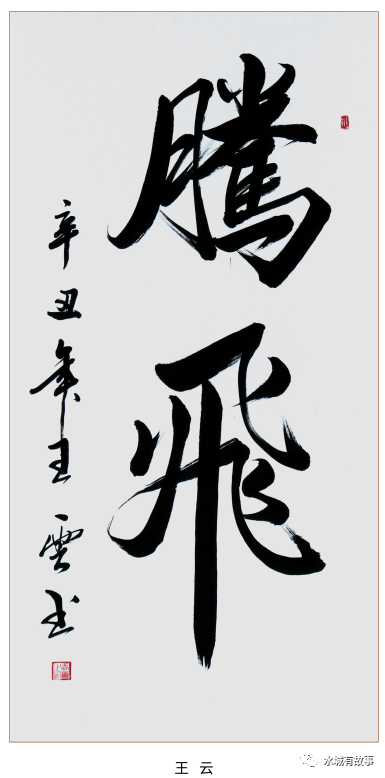 騰飛
辛丑年王雲书
王云
水城有故事